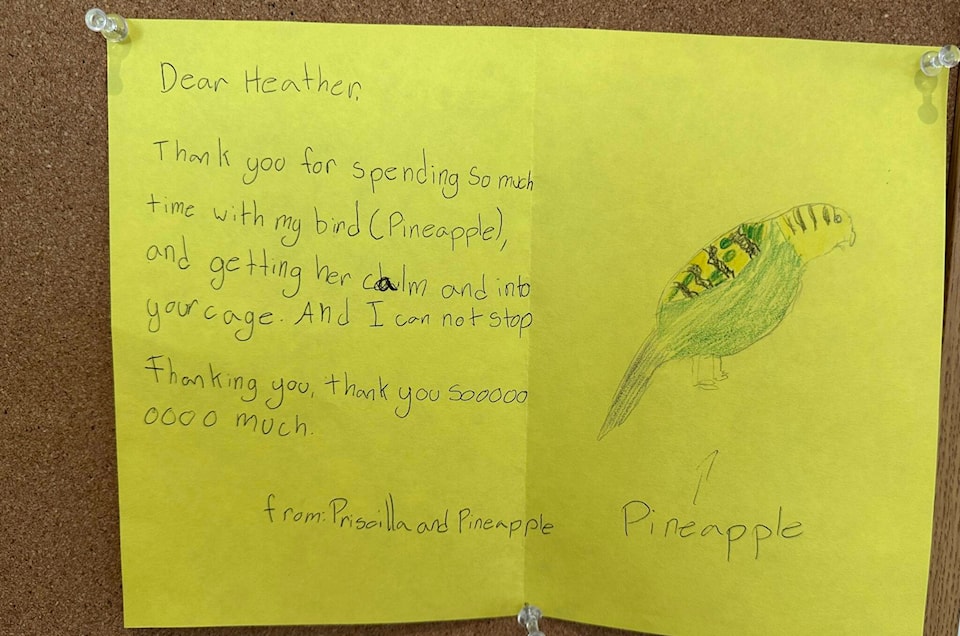 Dear Heather,
Thank you for spending so much
time with my bird (Pineapple),
and getting her calm and into
your cage. And I can not stop
Thanking you, thank you sooooo
oooo much.
from: Priscilla and Pineapple
Pineapple